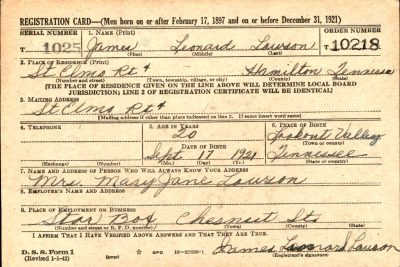 REGISTRATION CARD—(Men born on or after February 17, 1897 and on or before December 31, 1921)
SERIAL NUMBER 1. NAME (Print) ORDER NUMBER
T 1025 James Leonard Lawson 10218
(First) (Middle) (Last)
2. PLACE OF RESIDENCE (Print)
St Elmo Rt 4 Hamilton Tennessee
(Number and street) (Town, township, village, or city) (County) (State)
[THE PLACE OF RESIDENCE GIVEN ON THE LINE ABOVE WILL DETERMINE LOCAL BOARD
JURISDICTION; LINE 2 OF REGISTRATION CERTIFICATE WILL BE IDENTICAL]
3. MAILING ADDRESS
St Elmo Rt 4
[Mailing address if other than place indicated on line 2. If same insert word same]
4. TELEPHONE 5. AGE IN YEARS 6. PLACE OF BIRTH
20 Lookout Valley
DATE OF BIRTH (Town or county)
Sept. 17 1921 Tennessee
(Exchange) (Number) (Mo.) (Day) (Yr.) (State or country)
7. NAME AND ADDRESS OF PERSON WHO WILL ALWAYS KNOW YOUR ADDRESS
Mrs. Mary Jane Lawson
8. EMPLOYER'S NAME AND ADDRESS
9. PLACE OF EMPLOYMENT OR BUSINESS
Star Box Chesnut St.
(Number and street or R. F. D. number) (Town) (County) (State)
I AFFIRM THAT I HAVE VERIFIED ABOVE ANSWERS AND THAT THEY ARE TRUE.
D. S. S. Form 1 James Leonard Lawson
(Revised 1-1-42) (over) GPO (Registrant's signature)